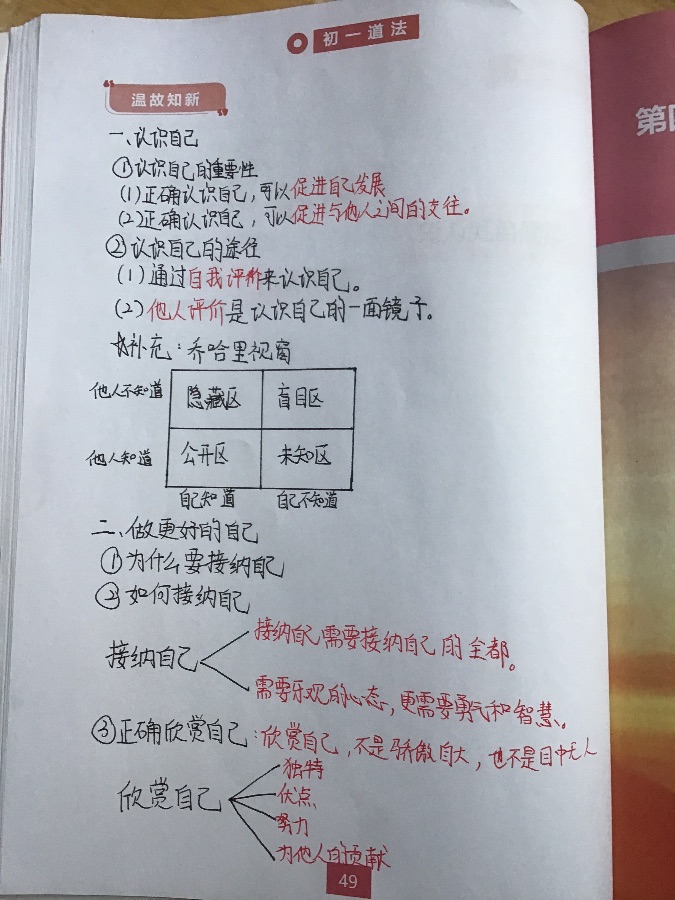 初一道法
温故知新
一、认识自己
①认识自己的重要性
(1)正确认识自己,可以促进自己发展
(2)正确认识自己,可以促进与他人之间的交往。
②认识自己的途径
(1)通过自我评价来认识自己。
(2)他人评价是认识自己的一面镜子。
补充:乔哈里视窗
他人不知道 隐藏区 盲目区
他人知道 公开区 未知区
自己知道 自己不知道
二、做更好的自己
①为什么要接纳自己
②如何接纳自己
接纳自己需要接纳自己的全都。
接纳自己
需要乐观的心态,更需要勇气和智慧。
③正确欣赏自己:欣赏自己,不是骄傲自大,也不是目中无人
独特
欣赏自己
优点
努力
为他人的贡献
49
第